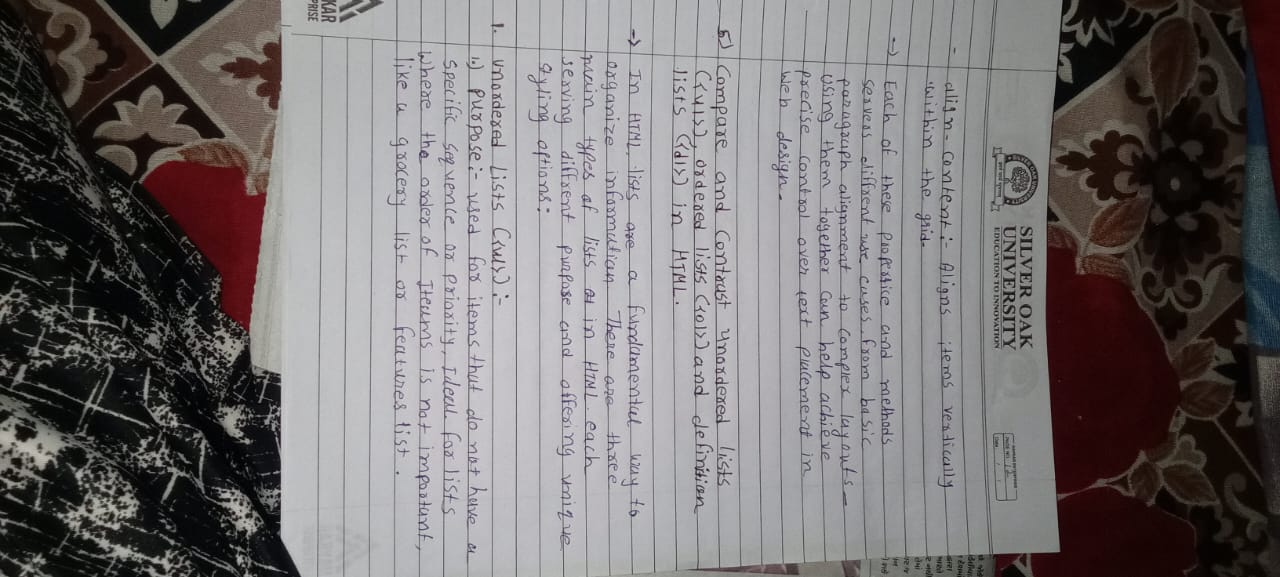 SILVER OAK
UNIVERSITY
EDUCATION TO INNOVATION
- align-content :- Aligns items vertically
within the grid
-> Each of these properstice and methods
servers different use cases from basic
paragraph alignment to complex layouts -
using them together can help achieve
precise control over text placement in
Web design.
5) Compare and Contrast unordered lists
(<ul>), ordered lists (<ol>) and definition
lists (<dl>) in HTML.
-> In HTML, lists are a fundamental way to
organize information There are three
main types of lists in HTML. each
serving diffrent purpose and offering unique
styling oftions:
1. unordered Lists (<ul>) :-
1.) purpose :- used for items that do not have a
specific sequence or priority, Ideal for lists
Where the order of Iteums is not important,
like a grocery list or features list.
KAR
PRISE